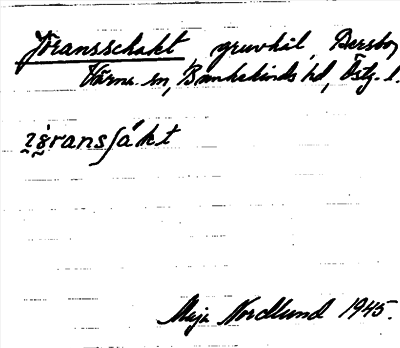 Fransschakt gruvhål, Bersbo,
Värna sn, Bankekinds hd, Östg. l.
Maja Nordlund 1945.